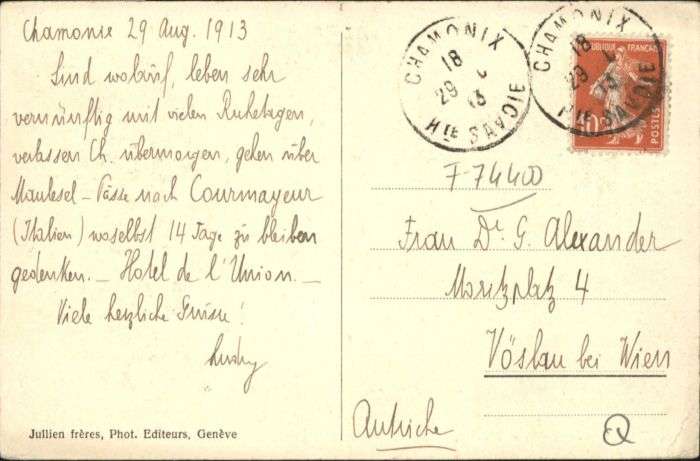 Chamonix 29 Aug. 1913
Sind wohlauf, leben sehr
vernünftig mit vielen Ruhetagen,
verlassen Ch. übermorgen, gehen über
Maulesel-Pässe nach Courmayeur
(Italien) woselbst 14 Tage zu bleiben
gedenken. — Hotel de l'Union. —
Viele herzliche Grüsse!
Jullien frères, Phot. Editeurs, Genève
CHAMONIX
18
29 13
Hte SAVOIE
CHAMONIX
18
29 13
Hte SAVOIE
RÉPUBLIQUE FRANÇAISE
10c
POSTES
F-74400
Frau Dr. G. Alexander
Moritzplatz 4
Vöslau bei Wien
Autriche
Q